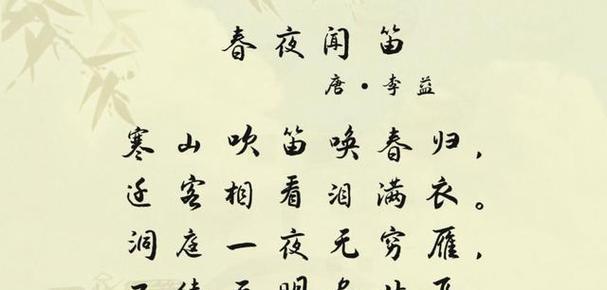 春夜闻笛
唐·李益
寒山吹笛唤春归，
迁客相看泪满衣。
洞庭一夜无穷雁，